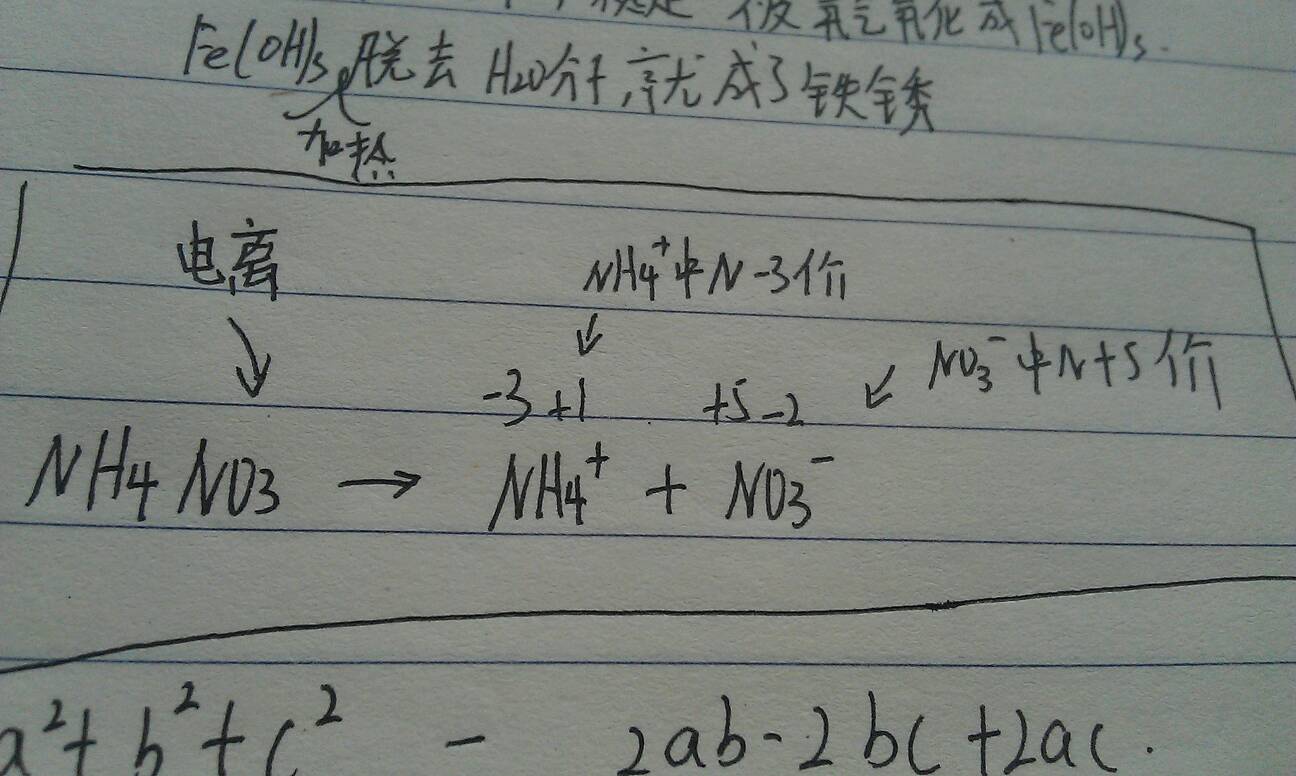 被氧气氧化成Fe(OH)₃.
Fe(OH)₃脱去 H₂O分子,就成了铁锈
加热
电离
NH₄⁺中N -3价
NO₃⁻中N+5价
-3 +1 +5 -2
NH₄NO₃ → NH₄⁺ + NO₃⁻
a²+b²+c² - 2ab-2bc+2ac.